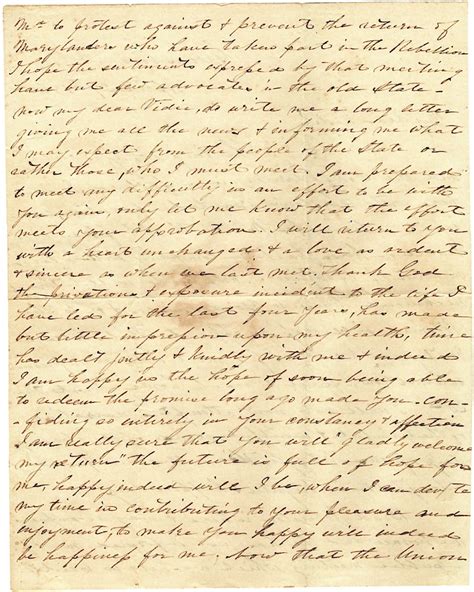 Md to protest against & prevent the return of
Marylanders who have taken part in the Rebellion
I hope the sentiments expressed by that meeting
have but few advocates, in the old State -
now my dear Vidie, do write me a long letter
giving me all the news & informing me what
I may expect from the people of the State or
rather those, who I must meet. I am prepared
to meet my difficulty in an effort to be with
you again, only let me know that the effort
meets your approbation. I will return to you
with a heart unchanged & a love as ardent
& sincere as when we last met. thank God
the privations & exposure incident to the life I
have led for the last four years, has made
but little impression upon my health, time
has dealt gently & kindly with me & indeed
I am happy in the hope of soon being able
to redeem the promise long ago made you. con-
-fiding so entirely in your constancy & affection
I am really sure that you will "gladly welcome
my return" the future is full of hope for
me, happy indeed will I be, when I can devote
my time in contributing to your pleasure and
enjoyment, to make you happy will indeed
be happiness for me. Now that the Union